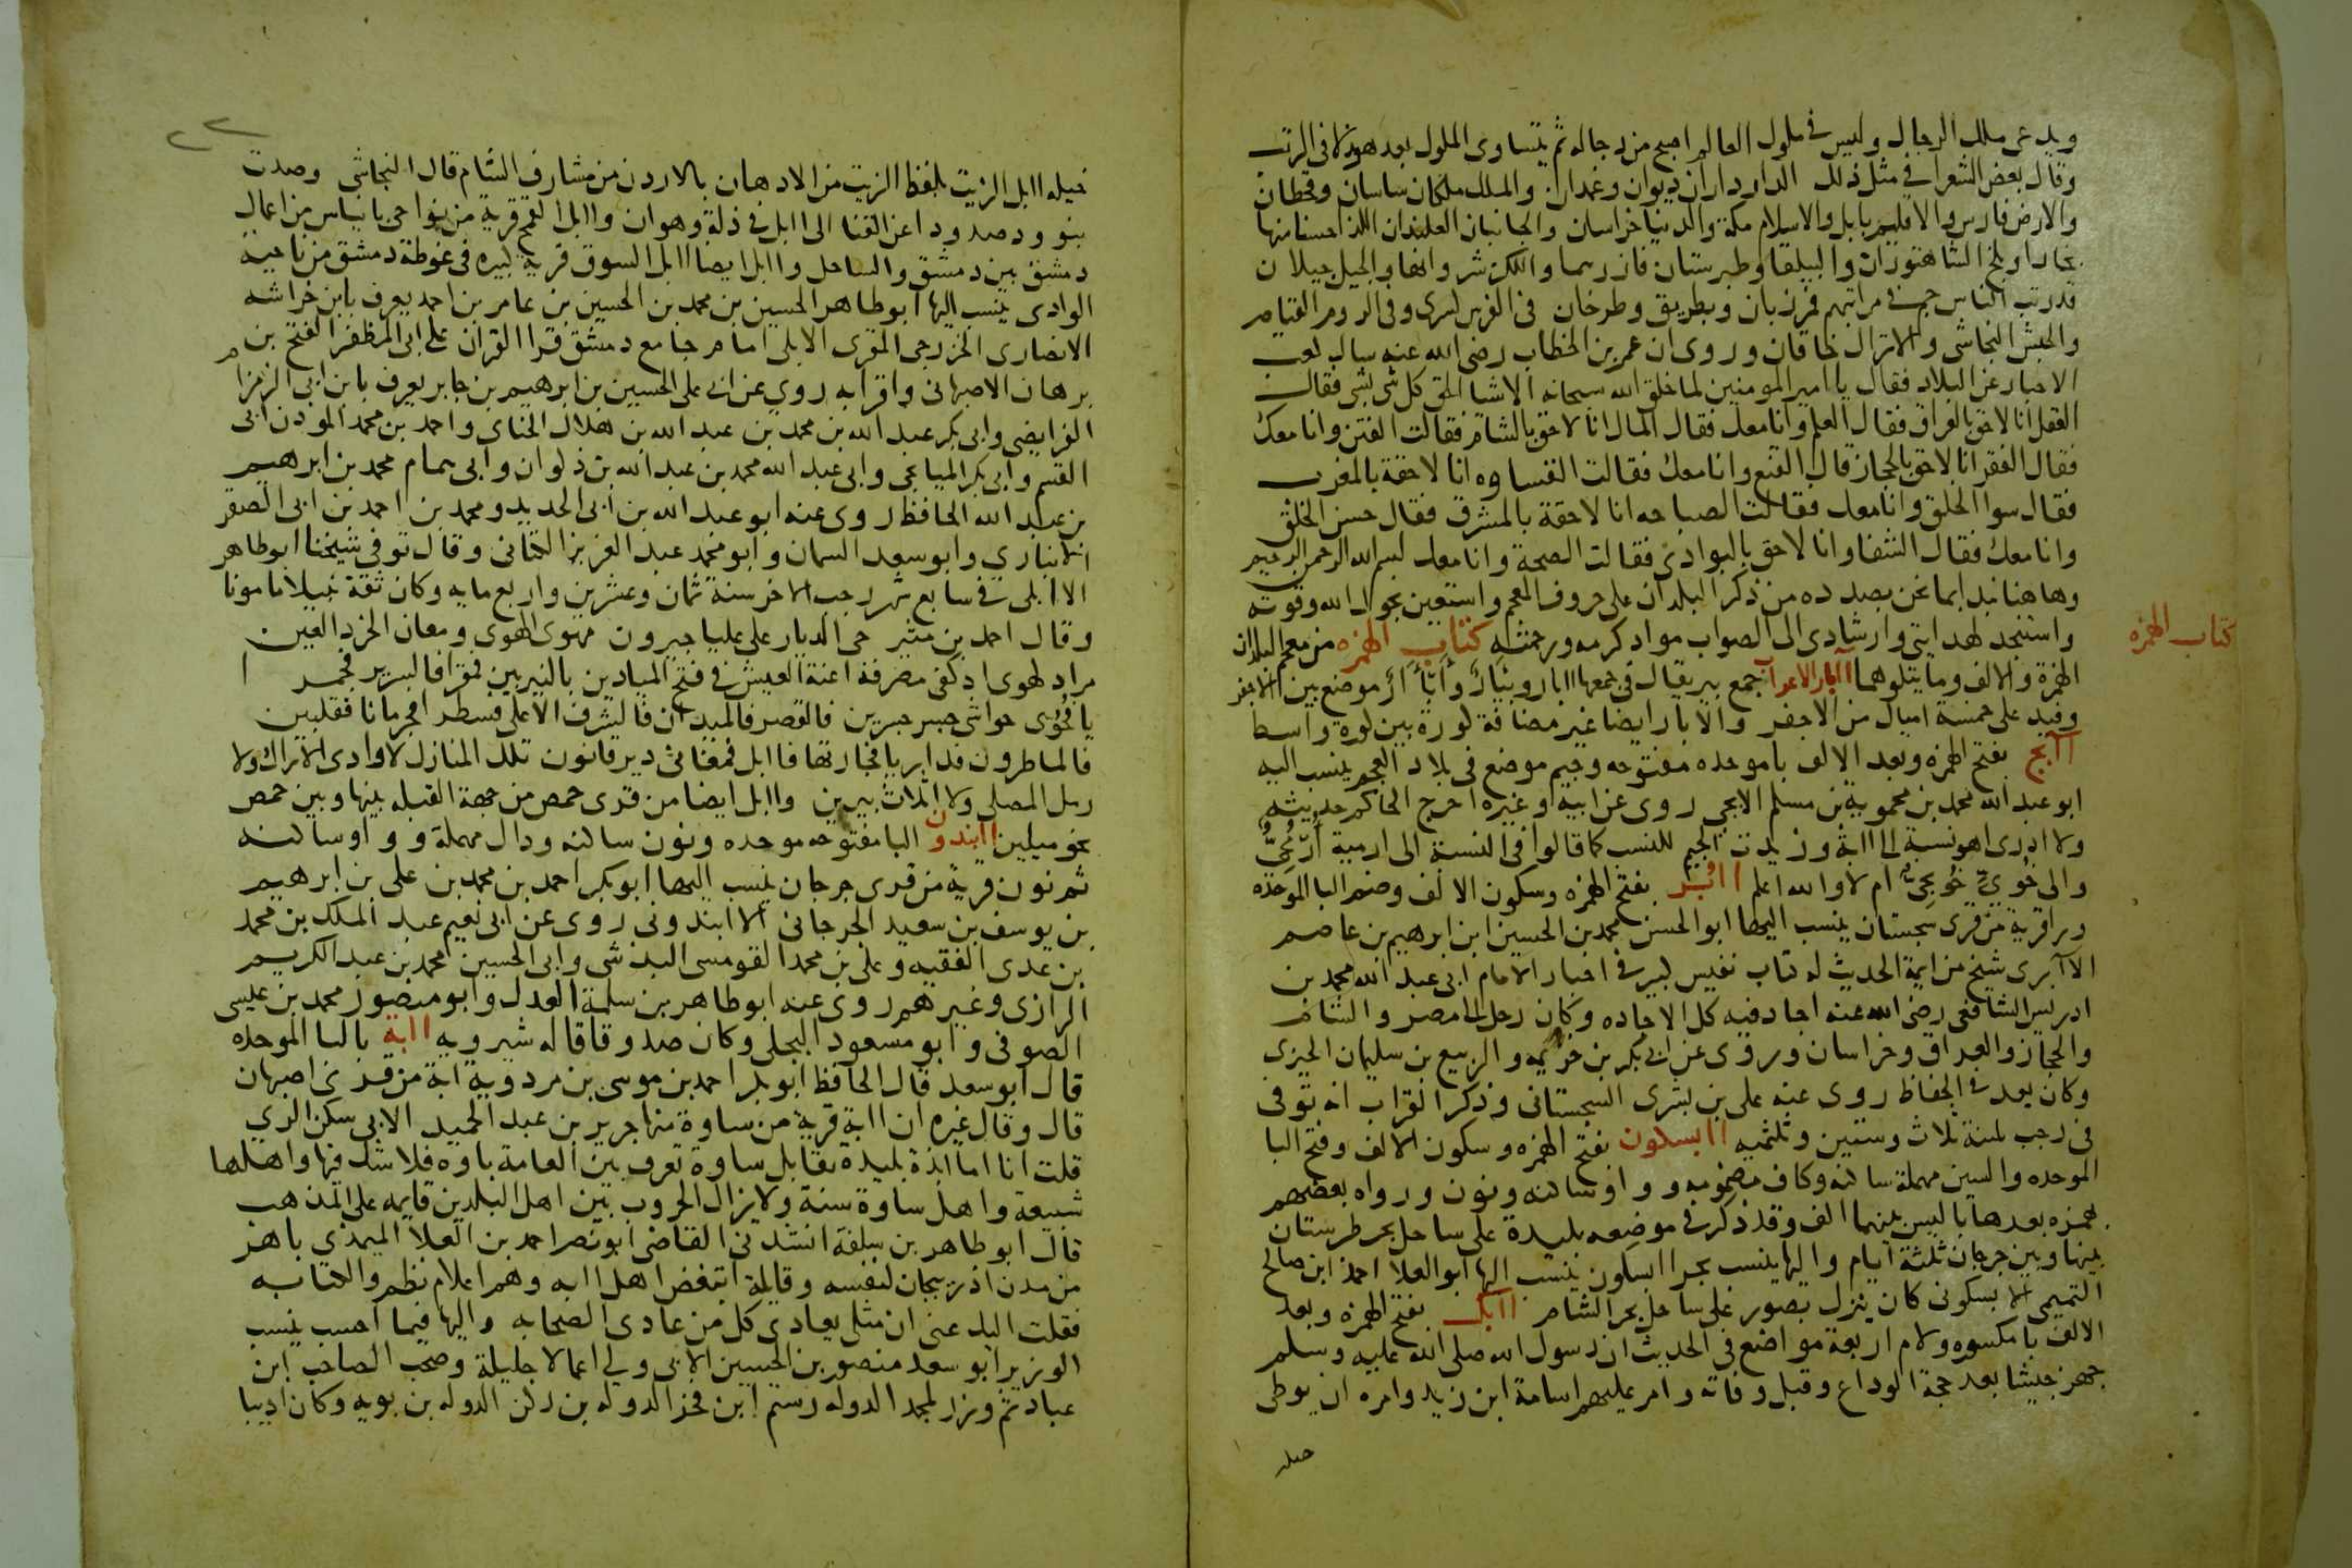 ويدعى ملك الرجال وليس في ملوك العالم اصبح من رجاله ثم يتساوى الملوك بعد هولا في الرتب
وقال بعض الشعرا في مثل ذلك الدار داران ديوان وغمدان والملك ملكان ساسان وقحطان
والارض فارس والاقليم بابل والاسلام مكة والدنيا خراسان والجانبان العلندان اللذا خسنا منها
بخارا وبلخ الشاه توران والبيلقا وطبرستان فازرسما والكز شروانها والجيل جيلان
قد رتب الناس جم في مراتبهم فمرزبان وبطريق وطرخان في الفرس كسرى وفي الروم القياصر
والحبش النجاشي والاتراك خاقان وروى ان عمر بن الخطاب رضى الله عنه سال كعب
الاحبار عن البلاد فقال يا امير المومنين لما خلق الله سبحانه الاشيا الحق كل شى بشى فقال
العقل انا لاحق بالعراق فقال العلم وانا معك فقال المال انا لاحق بالشام فقالت الفتن وانا معك
فقال الفقر انا لاحق بالحجاز قال القنع وانا معك فقالت القساوه انا لاحقة بالمغرب
فقال سوا الخلق وانا معك فقالت الصباحه انا لاحقة بالمشرق فقال حسن الخلق
وانا معك فقال الشقا وانا لاحق بالبوادى فقالت الصحة وانا معك بسم الله الرحمن الرحيم
وهاهنا نبدا بما نحن بصدده من ذكر البلدان على حروف المعجم واستعين بحول الله وقوته
واستنجد لهدايتى وارشادى الى الصواب مواد كرمه ورحمته كتاب الهمزه من معجم البلدان
كتاب الهمزه
الهمزة والالف وما يتلوهما آابار الاعراب جمع بير يقال في جمعها اابار وبئار وأبآر موضع بين الاجفر
وفيد على خمسة اميال من الاجفر والابار ايضا غير مضافة كورة بين كورة واسط
اابج بفتح الهمزه وبعد الالف با موحده مفتوحه وجيم موضع فى بلاد العجم ينسب اليه
ابو عبد الله محمد بن محمويه بن مسلم الابجى روى عن ابيه وغيره اخرج الحاكم حديثه
ولا ادرى اهو نسبة الى اابة وزيدت الجيم للنسب كما قالوا فى النسبة الى ارمية أرمجى
والى خوى خويجى ام لا والله اعلم اابر بفتح الهمزه وسكون الالف وضم البا الموحده
ورا قرية من قرى سجستان ينسب اليها ابو الحسن محمد بن الحسين ابن ابرهيم بن عاصم
الاابرى شيخ من ايمة الحديث له كتاب نفيس كبير في اخبار الامام ابى عبد الله محمد بن
ادريس الشافعى رضى الله عنه اجاد فيه كل الاجاده وكان رحل الى مصر والشام
والحجاز والعراق وخراسان وروى عن ابى بكر بن خزيمه والربيع بن سليمان الجيزى
وكان يعد في الحفاظ روى عنه على بن بشرى السجستانى وذكر الفراب انه توفى
فى رجب لسنة ثلاث وستين وثلثميه اابسكون بفتح الهمزه وسكون الالف وفتح البا
الموحده والسين مهملة ساكنه وكاف مضمومه وواو ساكنه ونون ورواه بعضهم
بهمزه بعدها با ليس بينهما الف وقد ذكر في موضعه بليدة على ساحل بحر طبرستان
بينها وبين جرجان ثلثة ايام واليها ينسب بحر اابسكون ينسب اليها ابو العلا احمد ابن صالح
التميمى الابسكونى كان ينزل بصور على ساحل بحر الشام اابل بفتح الهمزه وبعد
الالف با مكسوره ولام اربعة مواضع فى الحديث ان رسول الله صلى الله عليه وسلم
جهز جيشا بعد حجة الوداع وقبل وفاته وامر عليهم اسامة ابن زيد وامره ان يوطى
خيله
خيله اابل الزيت بلفظ الزيت من الادهان بالاردن من مشارف الشام قال النجاشى وصدت
بنو ود صدودا عن القنا الى اابل في ذلة وهوان واابل القمح قرية من نواحى بانياس من اعمال
دمشق بين دمشق والساحل واابل ايضا اابل السوق قرية كبيره فى غوطة دمشق من ناحية
الوادى ينسب اليها ابو طاهر الحسين بن محمد بن الحسين بن عامر بن احمد يعرف بابن خراشه
الانصارى الخزرجى المقرى الابلى امام جامع دمشق قرا القران على ابى المظفر الفتح بن
برهان الاصبهانى واقرا به روى عن ابى على الحسين بن ابرهيم بن جابر يعرف بابن ابى الزمزام
الفرايضى وابى بكر عبد الله بن محمد بن عبد الله بن هلال الحناى واحمد بن محمد المودن ابى
القسم وابى بكر الميانجى وابى عبد الله محمد بن عبد الله بن ذكوان وابى همام محمد بن ابرهيم
بن عبد الله الحافظ روى عنه ابو عبد الله بن ابى الحديد ومحمد بن احمد بن ابى الصقر
الانبارى وابو سعد السمان وابو محمد عبد العزيز الكتانى وقال توفى شيخنا ابو طاهر
الاابلى في سابع شهر رجب الاخر سنة ثمان وعشرين واربع مايه وكان ثقة نبيلا مامونا
وقال احمد بن منير حى الديار على عليا جيرون مهوى الهوى ومغان الخرد العين
مراد لهوى اذ كفى مصرفة اعنة العيش في فتح الميادين بالنيربين فمقرا فالسرير فجمر ا
يا فجوى حواشى جسر جسرين فالقصر فالميدان فالشرف الاعلى فسطرا فجرمانا فقلبين
فالماطرون فداريا فجارتها فاابل فمغانى دير قانون تلك المنازل لا وادى الاراك ولا
رمل المصلى ولا اثلاث يبرين واابل ايضا من قرى حمص من جهة القبله بينها وبين حمص
نحو ميلين اابندون البا مفتوحه موحده ونون ساكنه ودال مهملة وواو ساكنه
ثم نون قرية من قرى جرجان ينسب اليها ابو بكر احمد بن محمد بن على بن ابرهيم
بن يوسف بن سعيد الجرجانى الاابندونى روى عن ابى نعيم عبد الملك بن محمد
بن عدى الفقيه وعلى بن محمد القومسى البذشى وابى الحسين محمد بن عبد الكريم
الرازى وغيرهم روى عنه ابو طاهر بن سلمة العدل وابو منصور محمد بن عيسى
الصوفى وابو مسعود البجلى وكان صدوقا قاله شيرويه اابة بالبا الموحده
قال ابو سعد قال الحافظ ابو بكر احمد بن موسى بن مردويه ابة من قرى اصبهان
قال وقال غيره ان اابة قرية من ساوة منها جرير بن عبد الحميد الابى سكن الرى
قلت انا اما ابة بليدة تقابل ساوة تعرف بين العامة باوه فلا شك فيها واهلها
شيعة واهل ساوة سنة ولا يزال الحروب بين اهل البلدين قايمه على المذهب
قال ابو طاهر بن سلفة انشدنى القاضى ابو نصر احمد بن العلا الميمذى باهر
من مدن اذربيجان لنفسه وقايلة اتبغض اهل اابه وهم اعلام نظم والكتابه
فقلت اليك عنى ان مثلى يعادى كل من عادى الصحابه واليها فيما احسب ينسب
الوزير ابو سعد منصور بن الحسين الابى ولى اعمالا جليلة وصحب الصاحب ابن
عباد ثم وزر لمجد الدوله رستم ابن فخر الدوله بن ركن الدوله بن بويه وكان اديبا